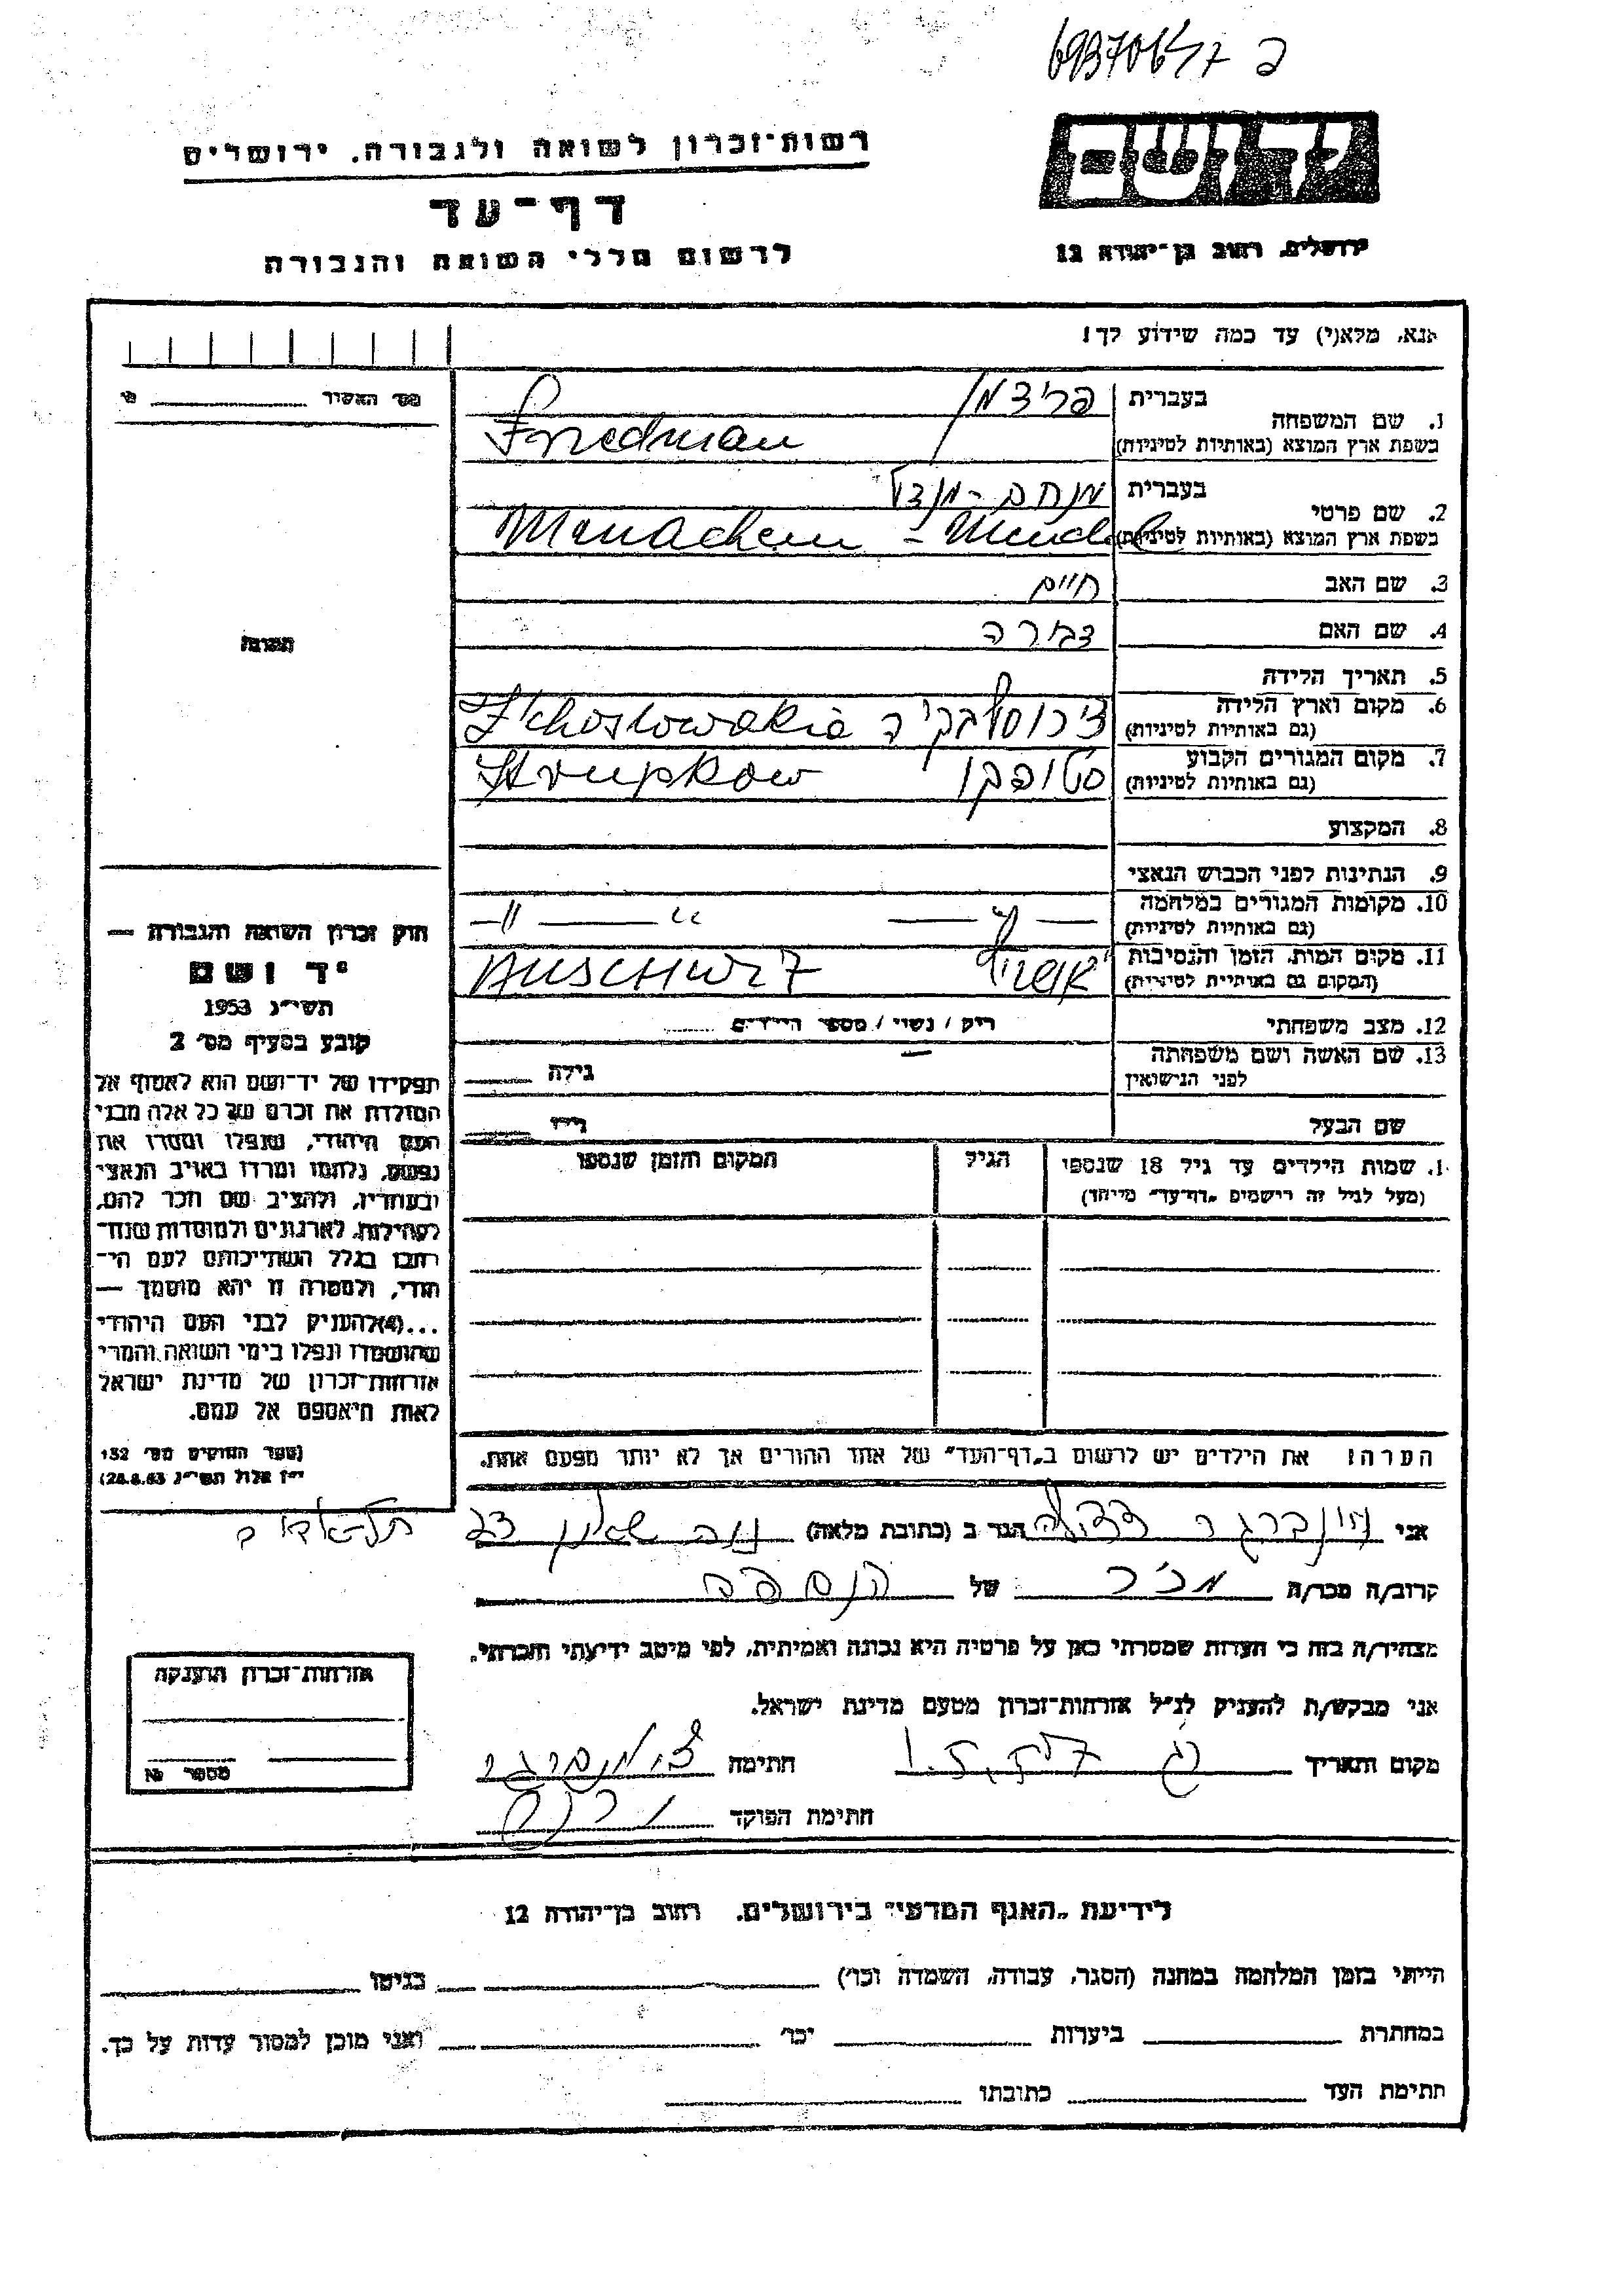 יד ושם
ירושלים, רחוב בן־יהודה 12
רשות־זכרון לשואה ולגבורה, ירושלים
דף־עד
לרשום חללי השואה והגבורה
אנא, מלא(י) עד כמה שידוע לך!
1. שם המשפחה בעברית פרידמן
בשפת ארץ המוצא (באותיות לטיניות) Friedman
2. שם פרטי בעברית מנחם - מנדל
בשפת ארץ המוצא (באותיות לטיניות) Menachem - Mendel
3. שם האב חיים
4. שם האם דבורה
5. תאריך הלידה
6. מקום וארץ הלידה צ'כוסלובקיה
(גם באותיות לטיניות) Z'choslowakia
7. מקום המגורים הקבוע סטרופקוב
(גם באותיות לטיניות) Strupkow
8. המקצוע
9. הנתינות לפני הכבוש הנאצי
10. מקומות המגורים במלחמה — " — — " —
(גם באותיות לטיניות)
11. מקום המות, הזמן והנסיבות אושויץ AUSCHWITZ
(המקום גם באותיות לטיניות)
12. מצב משפחתי רוק / נשוי / מספר הילדים
13. שם האשה ושם משפחתה
לפני הנישואין גילה
שם הבעל גילו
1. שמות הילדים עד גיל 18 שנספו הגיל המקום והזמן שנספו
(מעל לגיל זה רישמים "דף־עד" מייחד)
הערה: את הילדים יש לרשום ב"דף־העד" של אחד ההורים אך לא יותר מפעם אחת.
מס' האשיר
תמונה
חוק זכרון השואה והגבורה —
יד ושם
תשי"ג 1953
קובע בסעיף מס' 2
תפקידו של יד־ושם הוא לאסוף אל
המולדת את זכרם של כל אלה מבני
העם היהודי, שנפלו ומסרו את
נפשם, נלחמו ומרדו באויב הנאצי
ובעוזריו, ולהציב שם וזכר להם,
לקהילות, לארגונים ולמוסדות שנח־
רבו בגלל השתייכותם לעם הי־
הודי, ולמטרה זו יהא מוסמך —
...(4) להעניק לבני העם היהודי
שהושמדו ונפלו בימי השואה והמרי
אזרחות־זכרון של מדינת ישראל
לאות היאספם אל עמם.
(ספר החוקים מס' 132
י"ז אלול תשי"ג 28.8.53)
אני הגר ב (כתובת מלאה) נוה שאנן 23 תל־אביב
קרוב/ה מכר/ה מכיר של הנספה
מצהיר/ה בזה כי העדות שמסרתי כאן על פרטיה היא נכונה ואמיתית, לפי מיטב ידיעתי והכרתי.
אני מבקש/ת להעניק לנ"ל אזרחות־זכרון מטעם מדינת ישראל.
מקום ותאריך חתימה
חתימת הפוקד
אזרחות־זכרון הוענקה
מספר №
לידיעת "האגף המדעי" בירושלים, רחוב בן־יהודה 12
הייתי בזמן המלחמה במחנה (הסגר, עבודה, השמדה וכו') בגיטו
במחתרת ביערות וכו' ואני מוכן למסור עדות על כך.
חתימת העד כתובתו